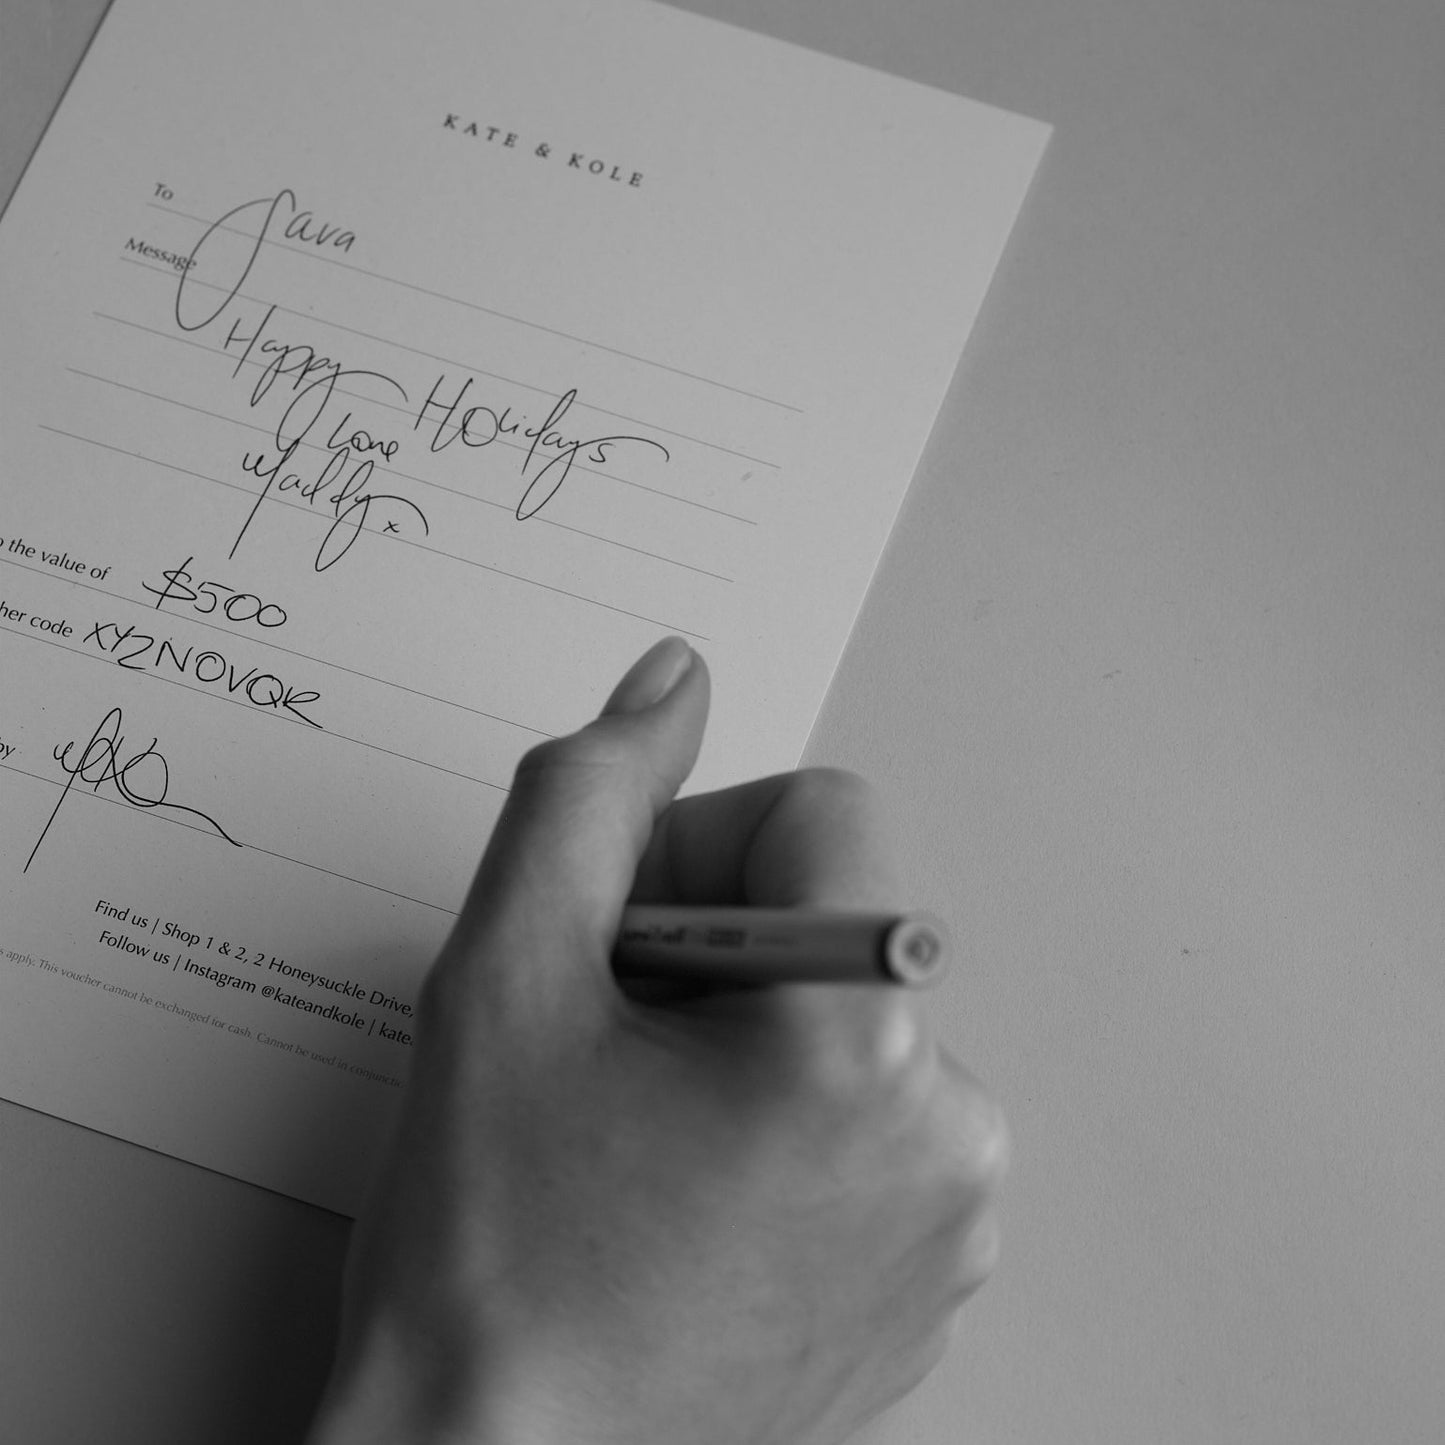 KATE & KOLE
To Sava
Message
Happy Holidays
Love
Maddy x
the value of $500
her code XYZNOVQR
by
Find us | Shop 1 & 2, 2 Honeysuckle Drive,
Follow us | Instagram @kateandkole | kate
apply. This voucher cannot be exchanged for cash. Cannot be used in